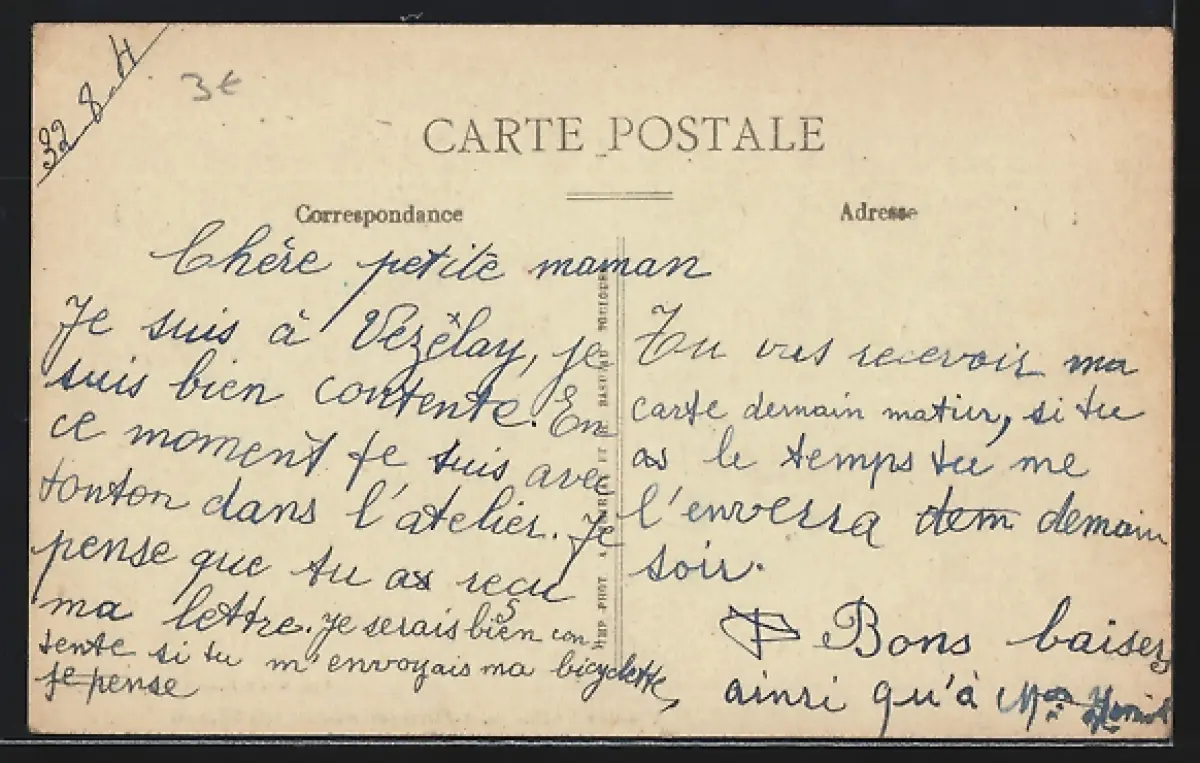 32 8 H
3€
CARTE POSTALE
Correspondance
Adresse
Chère petite maman
Je suis à Vézelay, je
suis bien contente. En
ce moment je suis avec
tonton dans l'atelier. Je
pense que tu as recu
ma lettre. je serais bien con
tente si tu m'envoyais ma bicyclette,
je pense
Tu vas recevoir ma
carte demain matin, si tu
as le temps tu me
l'enverra dem demain
soir.
B Bons baisers
ainsi qu'à
PHOT.
TOULOUSE